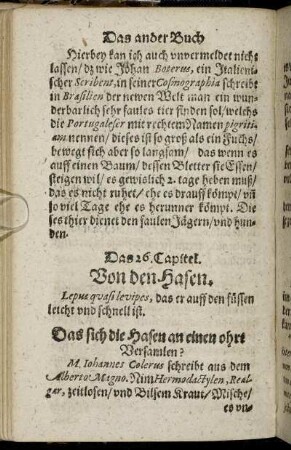 Das ander Buch
Hierbey kan ich auch vnvermeldet nicht
lassen/ dz wie Johan Boterus, ein Italieni-
scher Scribent, in seiner Cosmographia schreibt
in Brasilien der newen Welt man ein wun-
derbarlich sehr faules tier finden sol/ welchs
die Portugaleser mit rechtem Namen pigriti-
am nennen/ dieses ist so groß als ein Fuchs/
bewegt sich aber so langsam/ das wenn es
auff einen Baum/ dessen Bletter sie Essen/
steigen wil/ es gewislich 2. tage heben muß/
das es nicht ruhet/ ehe es drauff kömpt/ vñ
so viel Tage ehe es herunner kömpt. Die-
ses thier dienet den faulen Jägern/ vnd hun-
den.
Das 26. Capitel.
Von den Hasen.
Lepus quasi levipes, das er auff den füssen
leicht vnd schnell ist.
Das sich die Hasen an einen ohrt
Versamlen?
M. Iohannes Colerus schreibt aus dem
Alberto Magno. Nim Hermodactylen, Real-
gar, zeitlosen/ vnd Bilsem Kraut/ Mische/
es vn-